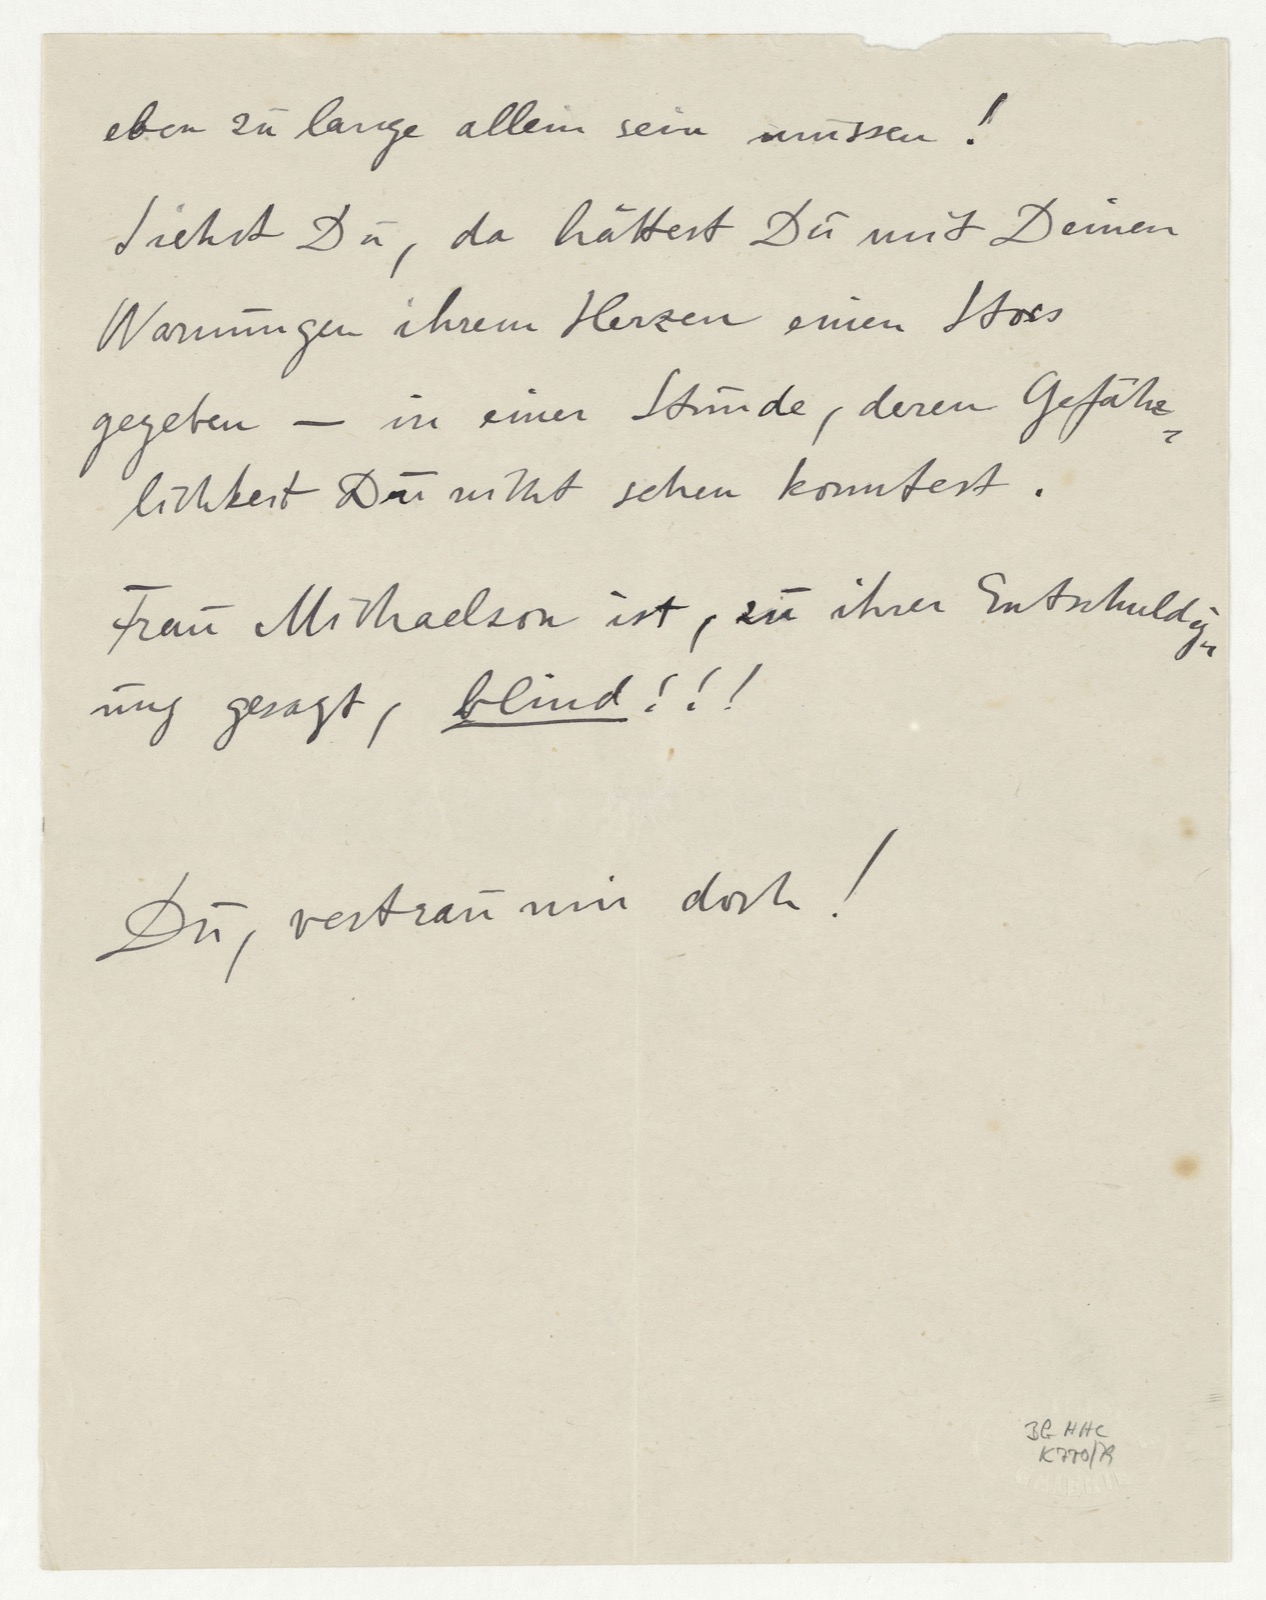 eben zu lange allein sein müssen!
Siehst Du, da hättest Du mit Deinen
Warnungen ihrem Herzen einen Stoss
gegeben — in einer Stunde, deren Gefähr-
lichkeit Du nicht sehen konntest.
Frau Michaelson ist, zu ihrer Entschuldig-
ung gesagt, blind!!!
Du, vertrau mir doch!
BG HHC
K770/79